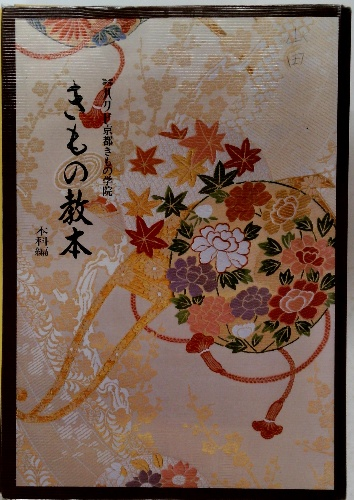 京都きもの学院
きもの教本
本科編
山田